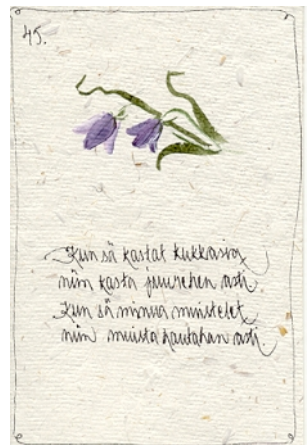 45.
Kun sä kastat kukkasia
niin kasta juurehen asti.
Kun sä minua muistelet
niin muista hautahan asti